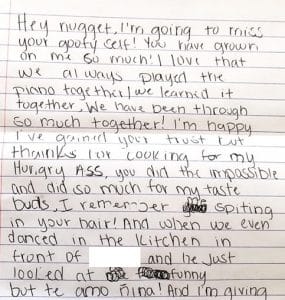 Hey nugget, I'm going to miss
your goofy self! You have grown
on me so much! I love that
we always played the
piano together, we learned it
together. We have been through
so much together! I'm happy
I've gained your trust but
thanks for cooking for my
Hungry ASS, you did the impossible
and did so much for my taste
buds. I remember spiting
in your hair! And when we even
danced in the kitchen in
front of and he just
looked at funny
but te amo Ñina! And I'm giving